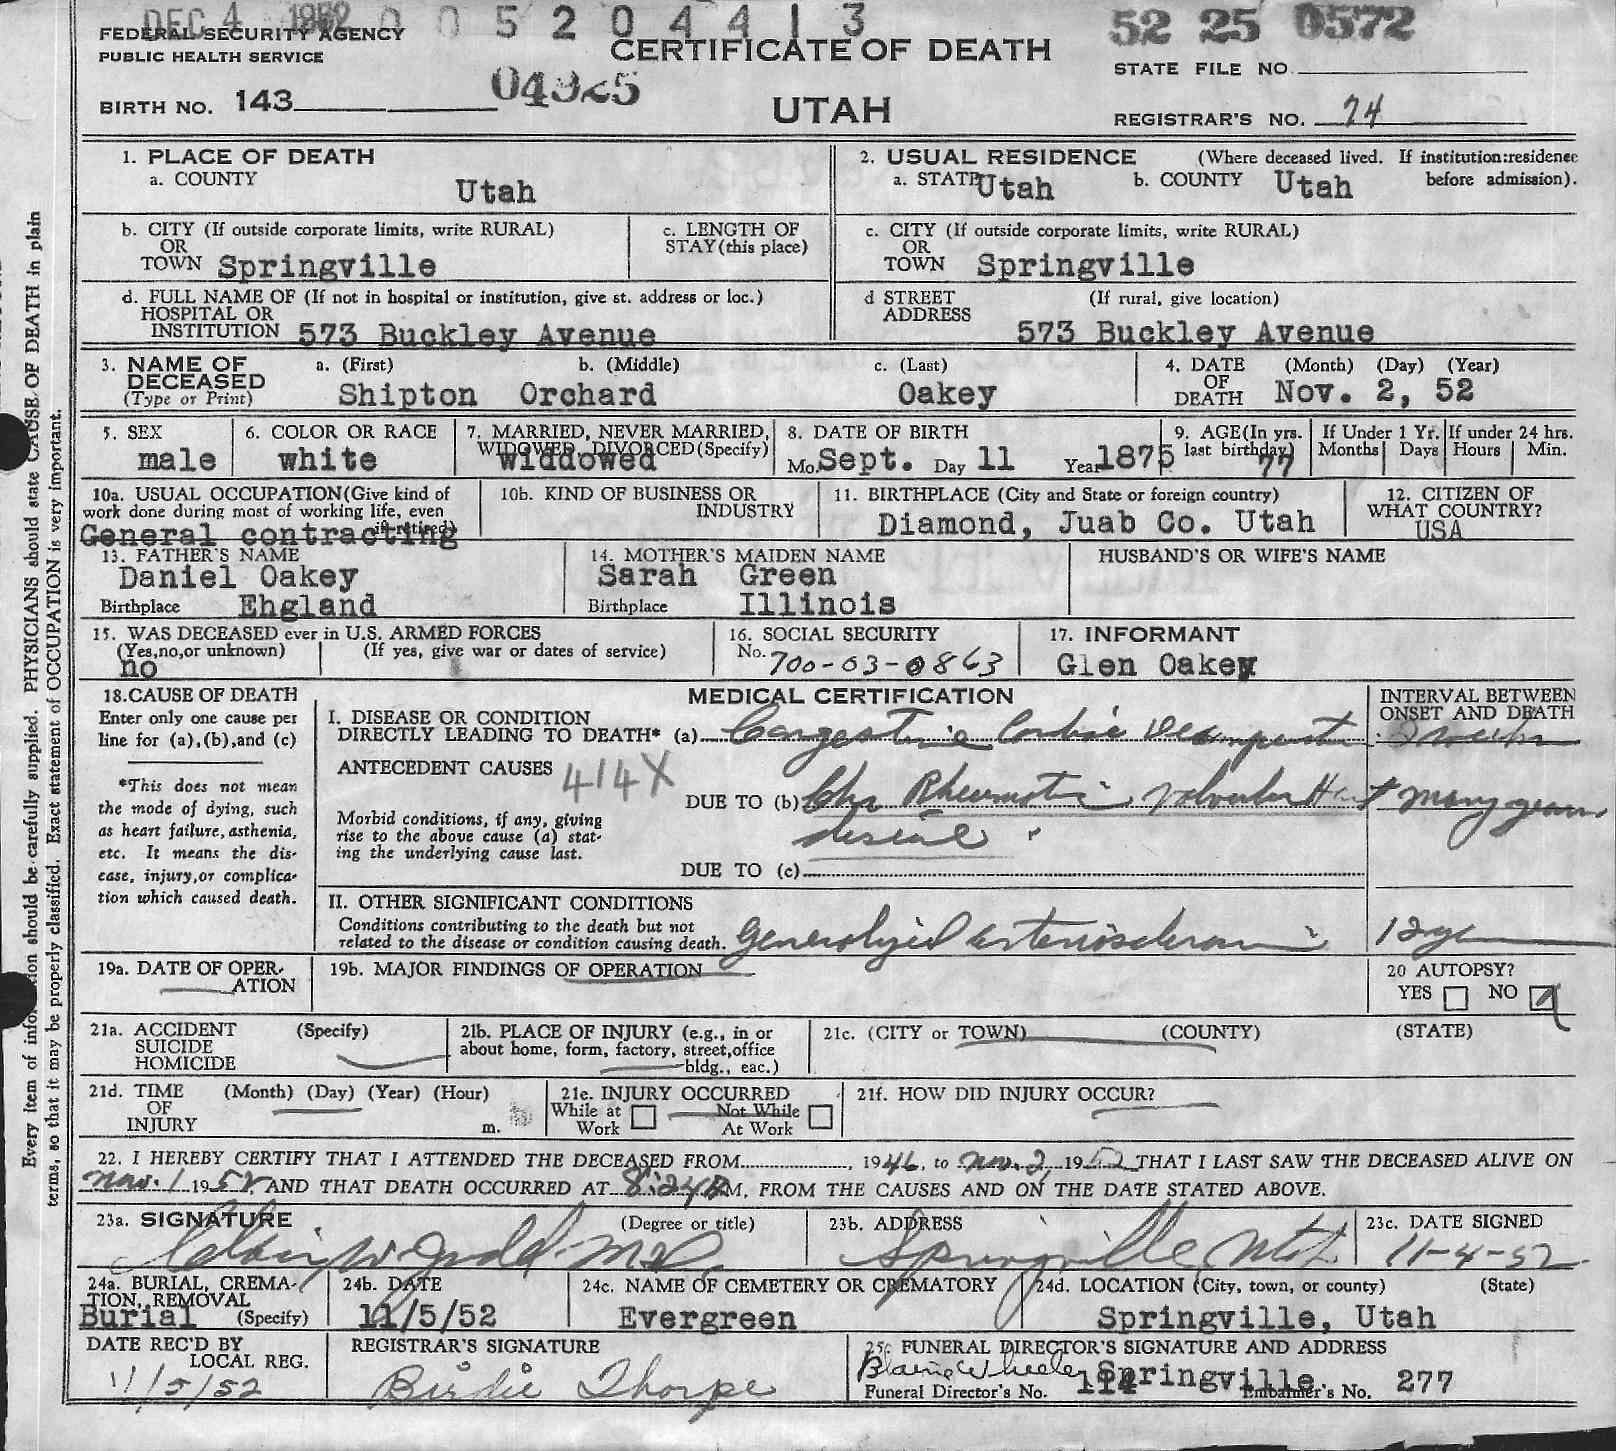 DEC 4 1952 0 0 5 2 0 4 4 1 3 52 25 0572
FEDERAL SECURITY AGENCY
PUBLIC HEALTH SERVICE
CERTIFICATE OF DEATH
STATE FILE NO.
BIRTH NO. 143 04925
UTAH
REGISTRAR'S NO. 74
1. PLACE OF DEATH
a. COUNTY
Utah
2. USUAL RESIDENCE (Where deceased lived. If institution:residence
a. STATE Utah b. COUNTY Utah before admission).
b. CITY (If outside corporate limits, write RURAL)
OR
TOWN Springville
c. LENGTH OF
STAY(this place)
c. CITY (If outside corporate limits, write RURAL)
OR
TOWN Springville
d. FULL NAME OF (If not in hospital or institution, give st. address or loc.)
HOSPITAL OR
INSTITUTION 573 Buckley Avenue
d STREET (If rural, give location)
ADDRESS
573 Buckley Avenue
3. NAME OF
DECEASED
(Type or Print)
a. (First) b. (Middle) c. (Last)
Shipton Orchard Oakey
4. DATE (Month) (Day) (Year)
OF
DEATH Nov. 2, 52
5. SEX
male
6. COLOR OR RACE
white
7. MARRIED, NEVER MARRIED,
WIDOWED, DIVORCED(Specify)
widdowed
8. DATE OF BIRTH
Mo. Sept. Day 11 Year 1875
9. AGE(In yrs.
last birthday)
77
If Under 1 Yr.
Months Days
If under 24 hrs.
Hours Min.
10a. USUAL OCCUPATION(Give kind of
work done during most of working life, even
if retired)
General contracting
10b. KIND OF BUSINESS OR
INDUSTRY
11. BIRTHPLACE (City and State or foreign country)
Diamond, Juab Co. Utah
12. CITIZEN OF
WHAT COUNTRY?
USA
13. FATHER'S NAME
Daniel Oakey
Birthplace Ehgland
14. MOTHER'S MAIDEN NAME
Sarah Green
Birthplace Illinois
HUSBAND'S OR WIFE'S NAME
15. WAS DECEASED ever in U.S. ARMED FORCES
(Yes,no,or unknown) (If yes, give war or dates of service)
no
16. SOCIAL SECURITY
No. 700-03-0863
17. INFORMANT
Glen Oakey
18.CAUSE OF DEATH
Enter only one cause per
line for (a),(b),and (c)
*This does not mean
the mode of dying, such
as heart failure, asthenia,
etc. It means the dis-
ease, injury,or complica-
tion which caused death.
MEDICAL CERTIFICATION
INTERVAL BETWEEN
ONSET AND DEATH
I. DISEASE OR CONDITION
DIRECTLY LEADING TO DEATH* (a) Congestive Cardiac Decompensation
ANTECEDENT CAUSES 414X
DUE TO (b) Chr Rheumatic valvular Heart many years
disease
Morbid conditions, if any, giving
rise to the above cause (a) stat-
ing the underlying cause last.
DUE TO (c)
II. OTHER SIGNIFICANT CONDITIONS
Conditions contributing to the death but not
related to the disease or condition causing death. Generalized arteriosclerosis
19a. DATE OF OPER-
ATION
19b. MAJOR FINDINGS OF OPERATION
20 AUTOPSY?
YES NO
21a. ACCIDENT (Specify)
SUICIDE
HOMICIDE
21b. PLACE OF INJURY (e.g., in or
about home, form, factory, street,office
bldg., eac.)
21c. (CITY or TOWN) (COUNTY) (STATE)
21d. TIME (Month) (Day) (Year) (Hour)
OF
INJURY m.
21e. INJURY OCCURRED
While at Not While
Work At Work
21f. HOW DID INJURY OCCUR?
22. I HEREBY CERTIFY THAT I ATTENDED THE DECEASED FROM , 1946, to Nov. 2, 1952 THAT I LAST SAW THE DECEASED ALIVE ON
Nov. 1 1952, AND THAT DEATH OCCURRED AT 8:24 M, FROM THE CAUSES AND ON THE DATE STATED ABOVE.
23a. SIGNATURE (Degree or title)
W Judd M.D.
23b. ADDRESS
Springville Utah
23c. DATE SIGNED
11-4-52
24a. BURIAL, CREMA-
TION, REMOVAL
Burial (Specify)
24b. DATE
11/5/52
24c. NAME OF CEMETERY OR CREMATORY
Evergreen
24d. LOCATION (City, town, or county) (State)
Springville, Utah
DATE REC'D BY
LOCAL REG.
11/5/52
REGISTRAR'S SIGNATURE
Birdie Thorpe
25. FUNERAL DIRECTOR'S SIGNATURE AND ADDRESS
Blaine Wheeler Springville
Funeral Director's No. 114 Embalmer's No. 277
Every item of information should be carefully supplied. PHYSICIANS should state CAUSE OF DEATH in plain
terms, so that it may be properly classified. Exact statement of OCCUPATION is very important.